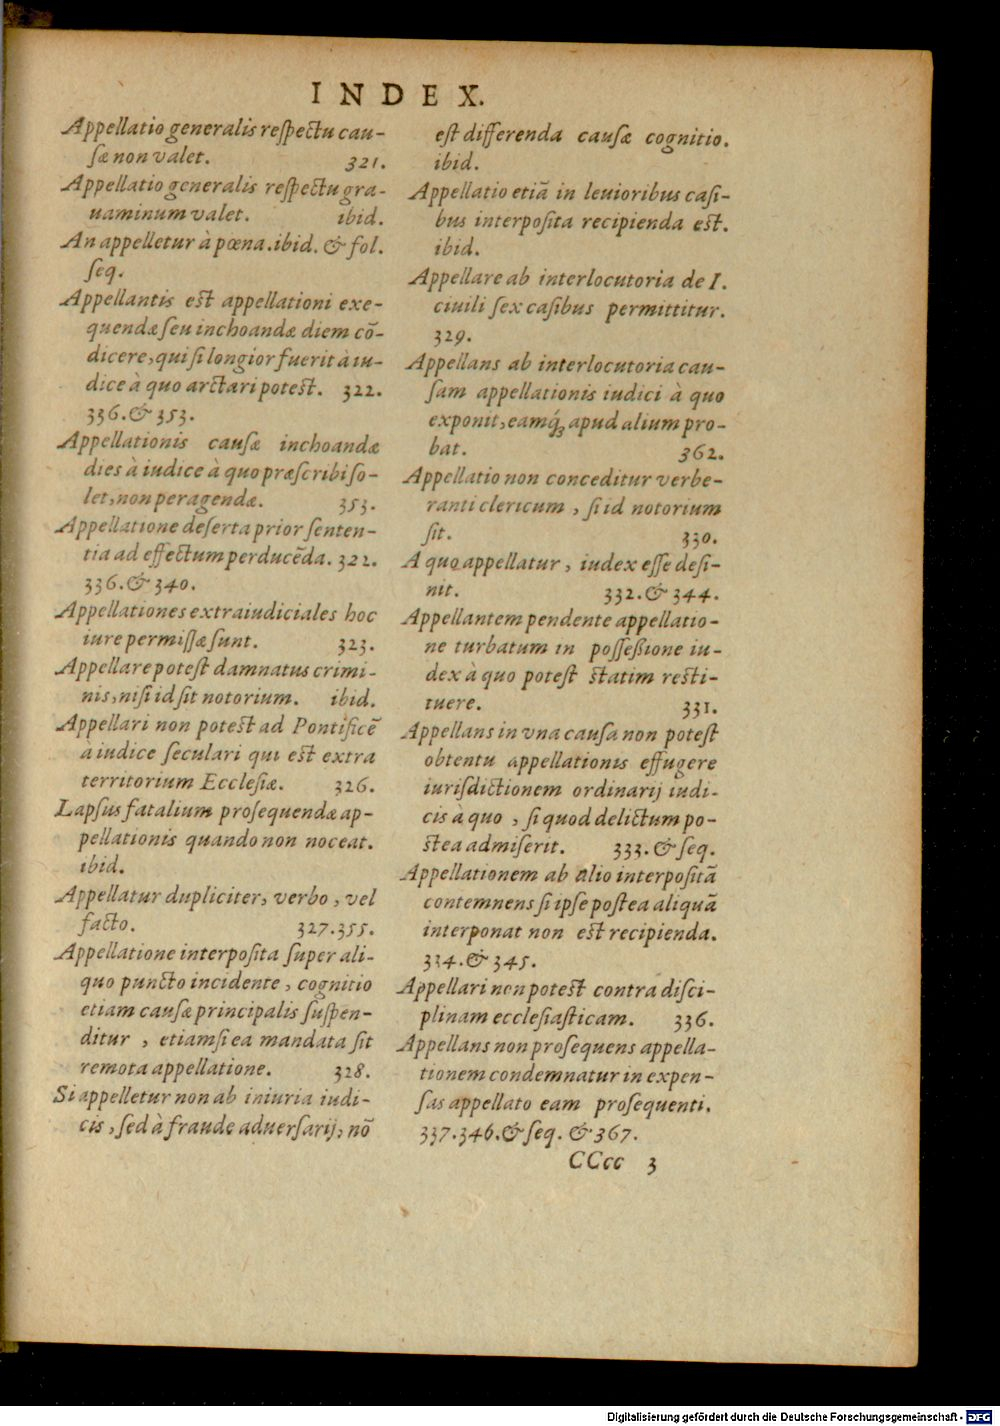 INDEX.
Appellatio generalis reſpectu cau-
ſæ non valet. 321.
Appellatio generalis reſpectu gra-
uaminum valet. ibid.
An appelletur à pœna. ibid. & fol.
ſeq.
Appellantis est appellationi exe-
quendæ ſeu inchoandæ diem cō-
dicere, qui ſi longior fuerit à iu-
dice à quo arctari potest. 322.
336. & 353.
Appellationis cauſæ inchoandæ
dies à iudice à quo præſcribi ſo-
let, non peragendæ. 353.
Appellatione deſerta prior ſenten-
tia ad effectum perducēda. 322.
336. & 340.
Appellationes extraiudiciales hoc
iure permiſſæ ſunt. 323.
Appellare poteſt damnatus crimi-
nis, niſi id ſit notorium. ibid.
Appellari non potest ad Pontificē
à iudice ſeculari qui est extra
territorium Eccleſiæ. 326.
Lapſus fatalium proſequendæ ap-
pellationis quando non noceat.
ibid.
Appellatur dupliciter, verbo, vel
facto. 327. 355.
Appellatione interpoſita ſuper ali-
quo puncto incidente, cognitio
etiam cauſæ principalis ſuſpen-
ditur, etiamſi ea mandata ſit
remota appellatione. 328.
Si appelletur non ab iniuria iudi-
cis, ſed à fraude aduerſarij, nō
eſt differenda cauſæ cognitio.
ibid.
Appellatio etiā in leuioribus caſi-
bus interpoſita recipienda est.
ibid.
Appellare ab interlocutoria de I.
ciuili ſex caſibus permittitur.
329.
Appellans ab interlocutoria cau-
ſam appellationis iudici à quo
exponit, eamq́ꝫ apud alium pro-
bat. 362.
Appellatio non conceditur verbe-
ranti clericum, ſi id notorium
ſit. 330.
A quo appellatur, iudex eſſe deſi-
nit. 332. & 344.
Appellantem pendente appellatio-
ne turbatum in poſſeßione iu-
dex à quo poteſt statim resti-
tuere. 331.
Appellans in vna cauſa non poteſt
obtentu appellationis effugere
iuriſdictionem ordinarij iudi-
cis à quo, ſi quod delictum po-
stea admiſerit. 333. & ſeq.
Appellationem ab alio interpoſitā
contemnens ſi ipſe poſtea aliquā
interponat non est recipienda.
334. & 345.
Appellari non potest contra diſci-
plinam eccleſiaſticam. 336.
Appellans non proſequens appella-
tionem condemnatur in expen-
ſas appellato eam proſequenti.
337. 346. & ſeq. & 367.
CCcc 3
Digitalisierung gefördert durch die Deutsche Forschungsgemeinschaft - DFG